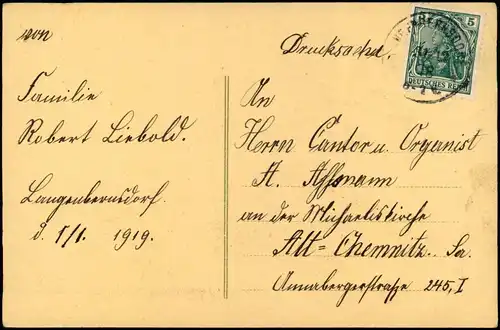 von
Familie
Robert Liebold.
Langenbernsdorf.
d. 1/1. 1919.
Drucksache.
5
DEUTSCHES REICH
An
Herrn Cantor u. Organist
A. Assmann
an der Michaeliskirche
Alt=Chemnitz. Sa.
Annabergerstraße 245, I